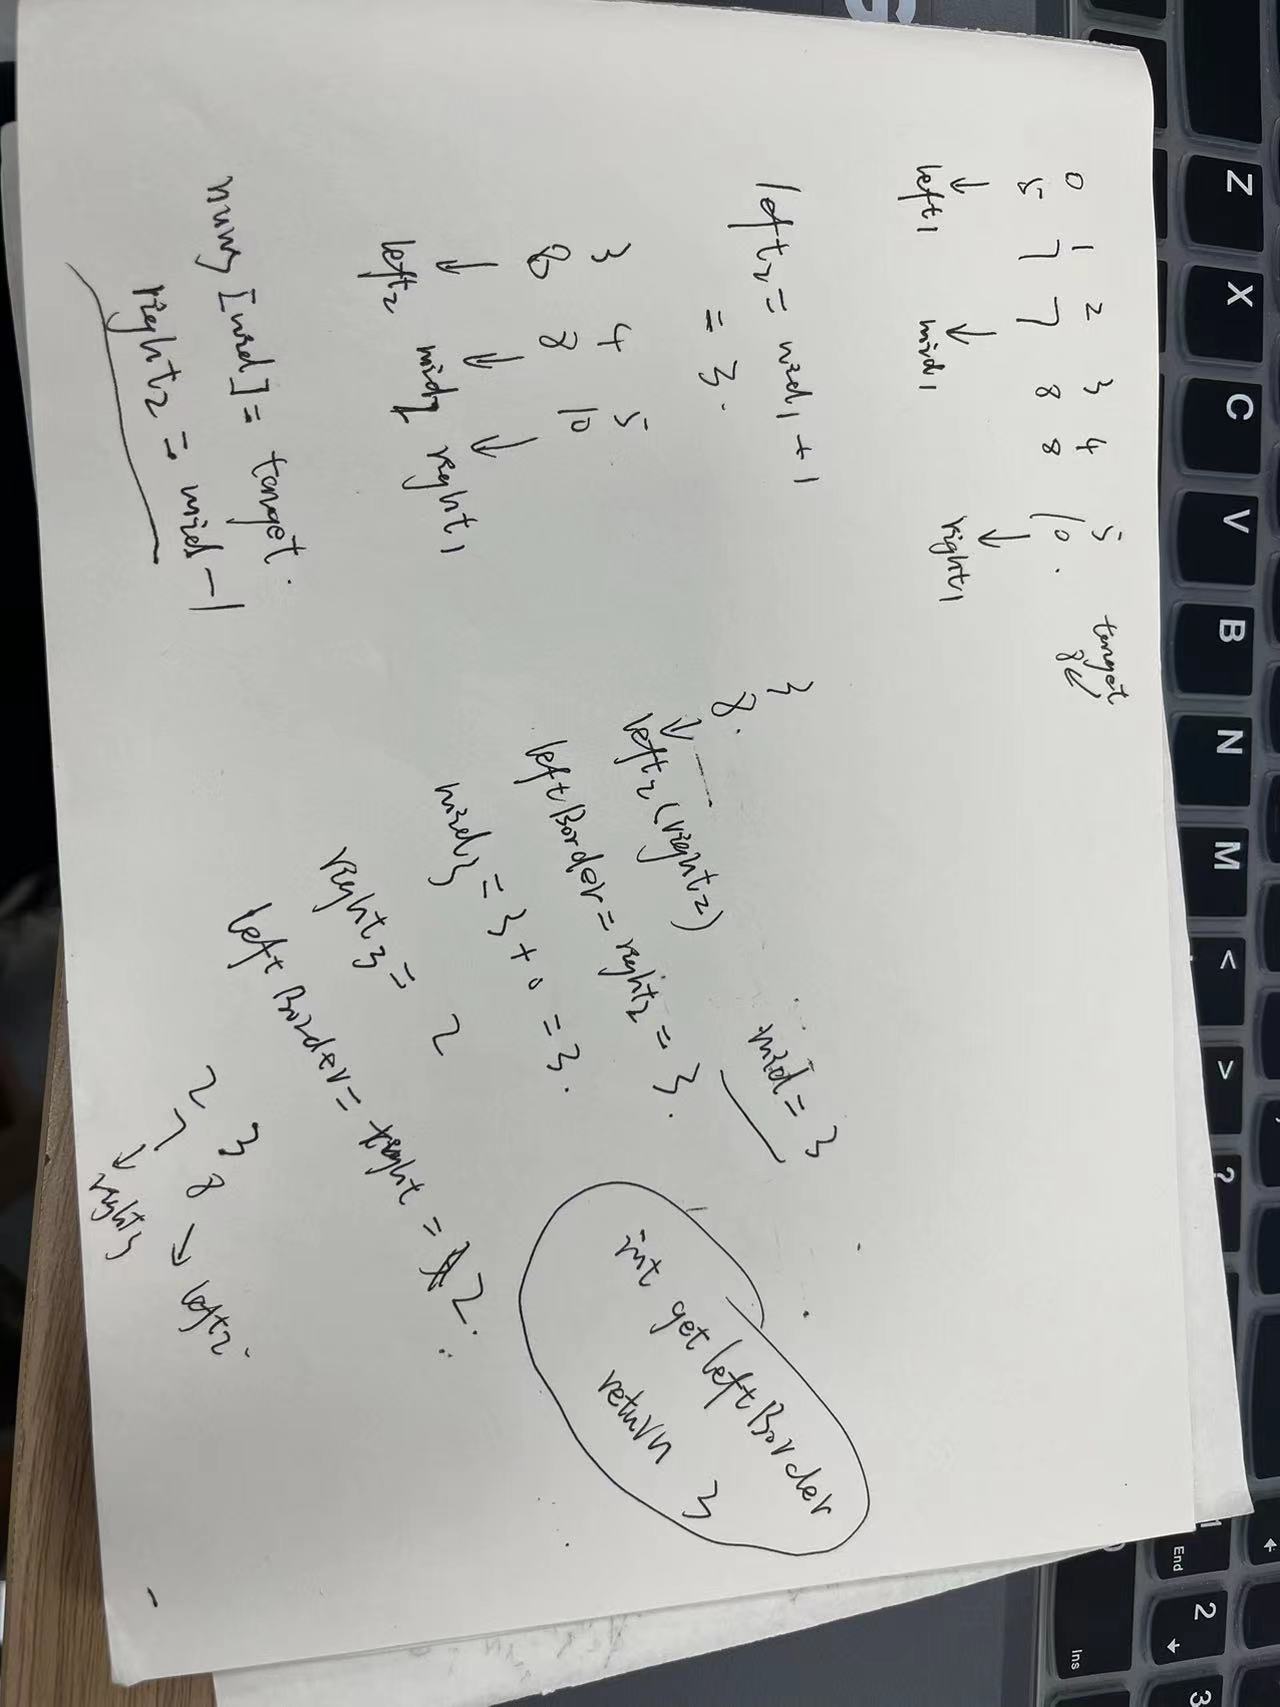 0 1 2 3 4 5 target
5 7 7 8 8 10. 8
↓ ↓ ↓
left1 mid1 right1
left2 = mid1 + 1
= 3.
3 4 5
8 8 10
↓ ↓ ↓
left2 mid2 right1
nums [mid] = target.
right2 = mid - 1
3
8.
↓
left2 (right2)
mid = 3
leftBorder = right2 = 3.
mid3 = 3 + 0 = 3.
right3 = 2
leftBorder = right = 2.
2 3
7 8 → left2.
↓
right3
int getleftBorder
return 3
Z X C V B N M < > ?
1 End
2 ↓
3
Ins